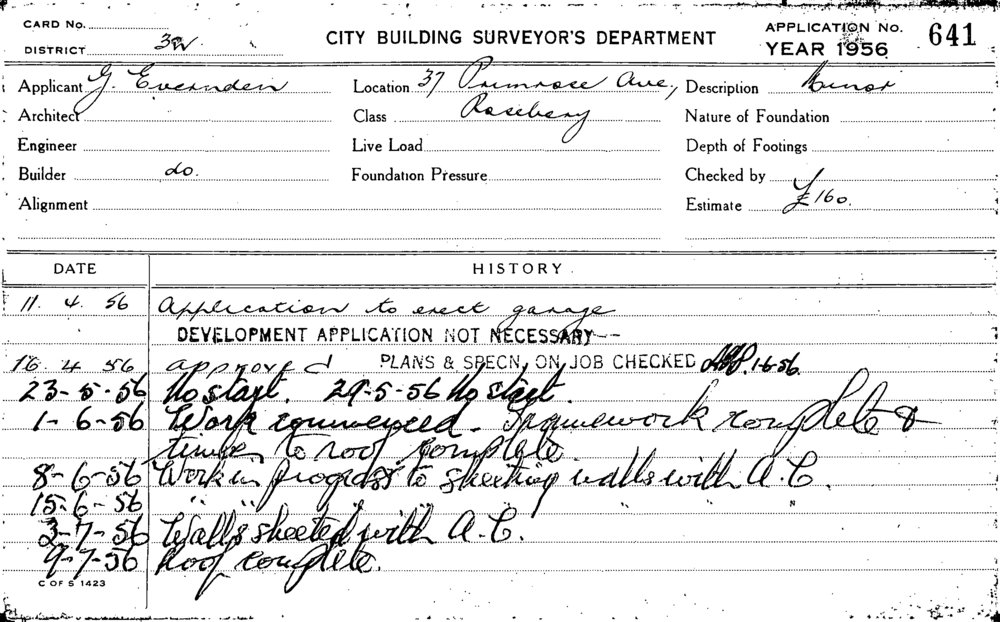 CARD No.
DISTRICT 3W
CITY BUILDING SURVEYOR'S DEPARTMENT
APPLICATION No. 641
YEAR 1956
Applicant G. Evernden Location 37 Primrose Ave, Description Minor
Architect Class Rosebery Nature of Foundation
Engineer Live Load Depth of Footings
Builder do. Foundation Pressure Checked by
Alignment Estimate £160.
DATE HISTORY
11. 4. 56 Application to erect garage
DEVELOPMENT APPLICATION NOT NECESSARY
16. 4 56 approved PLANS & SPECN. ON JOB CHECKED 1-6-56.
23-5-56 No start. 29-5-56 No start.
1-6-56 Work commenced. Framework complete &
timber to roof complete.
8-6-56 Work in progress to sheeting walls with A.C.
15-6-56 " " "
3-7-56 Walls sheeted with A.C.
9-7-56 Roof complete.
C OF S 1423